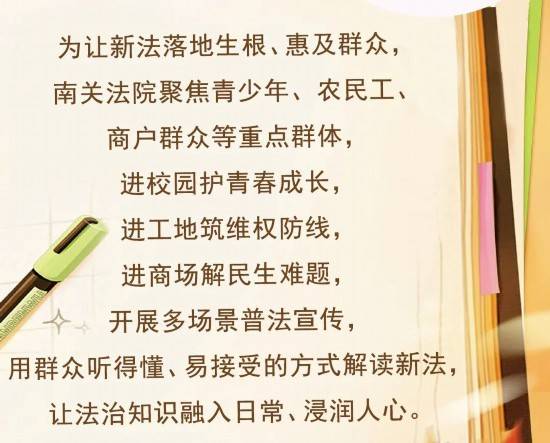 为让新法落地生根、惠及群众，
南关法院聚焦青少年、农民工、
商户群众等重点群体，
进校园护青春成长，
进工地筑维权防线，
进商场解民生难题，
开展多场景普法宣传，
用群众听得懂、易接受的方式解读新法，
让法治知识融入日常、浸润人心。